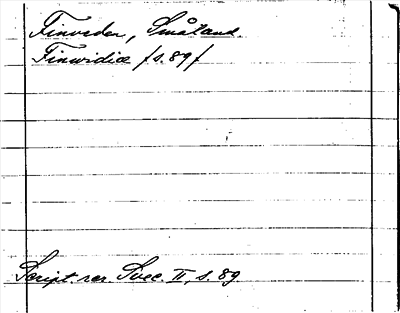 Finveden, Småland.
Finwidiæ /s. 89/
Script. rer. Svec. II, s. 89